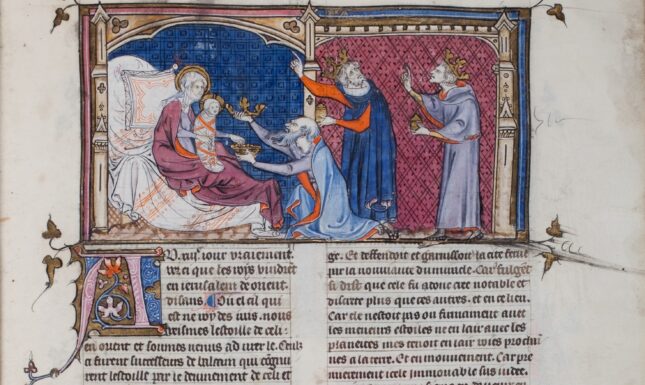 A U. iour vraiement
que les roys vindrēt
en ierusalem de orient.
disans. Ou est cil qui
est ne roy des iuis. nous
veismes lestoille de celi
en orient et sommes venus ad ourer le. Ceulz
ci furent successeurs de balaam qui cognu
rent lestoille par le denuncement de celi et
ge. Et deffendoit et garnissoit la cite
pur la nouuiaute du miracle. Car fulgeñ
se dist que cele fu notable et
discrete plus que ces autres. et en ce lieu.
Car ele nestoit pas ou firmament auec
les meneurs estoiles ne en lair auec les
planetes mes tenoit en lair voies prochai
nes a la terre. Et en mouuement. Car pre
mierement icele immouable sus iudee.